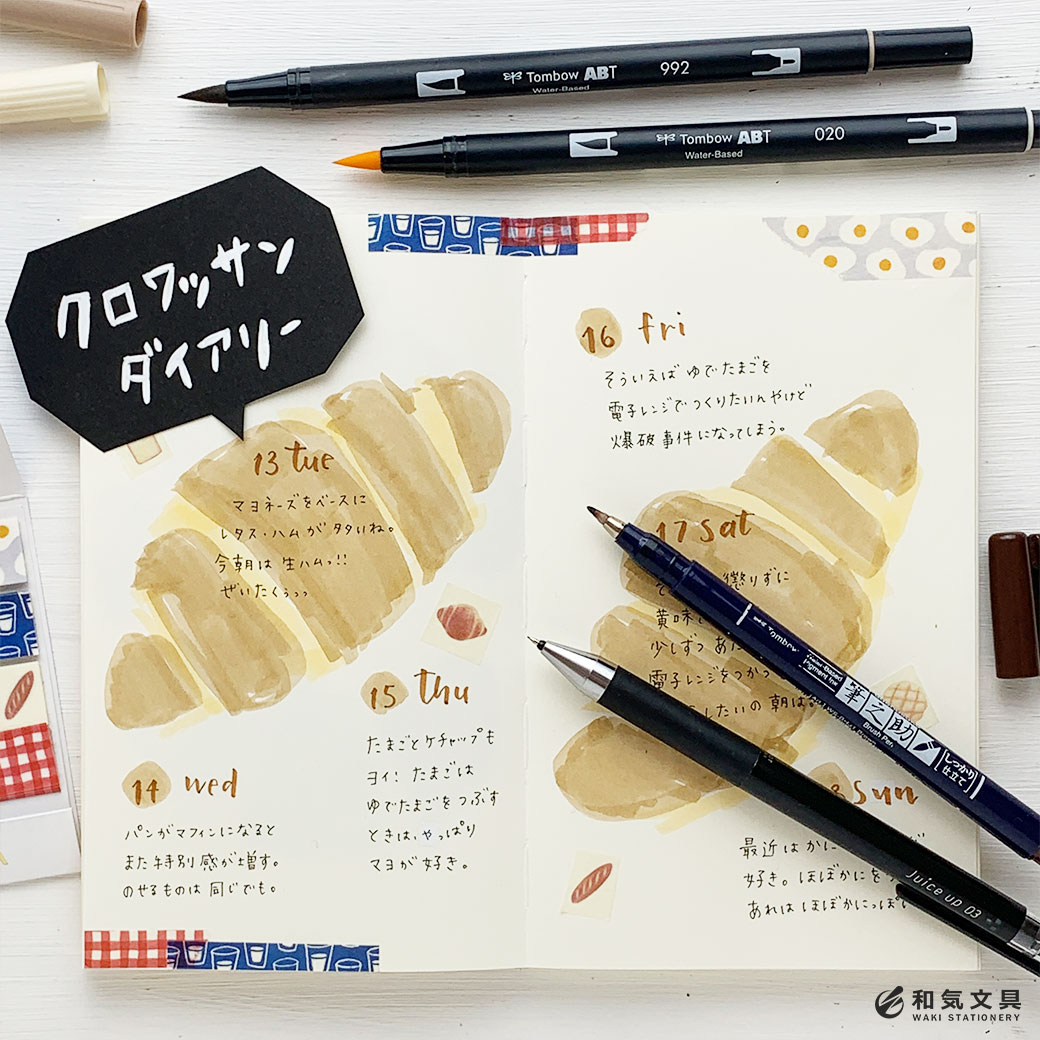 Tombow ABT 992
Water-Based
Tombow ABT 020
Water-Based
クロワッサン
ダイアリー
13 tue
マヨネーズをベースに
レタス・ハムが多いね。
今朝は生ハムっ!!
ぜいたくぅぅっ
14 wed
パンがマフィンになると
また特別感が増す。
のせるものは同じでも。
15 thu
たまごとケチャップも
ヨイ! たまごは
ゆでたまごをつぶす
ときは、やっぱり
マヨが好き。
16 fri
そういえばゆでたまごを
電子レンジでつくりたいんやけど
爆破事件になってしまう。
17 sat
懲りずに
黄味
少しずつ あた
電子レンジをつかっ
したいの 朝は。
sun
最近はかに
好き。ほぼかにを
あれはほぼかにっぽい
Tombow
Water-Based
Pigment Ink
筆之助
Brush Pen
しっかり
仕立て
Juice up 03
和気文具
WAKI STATIONERY